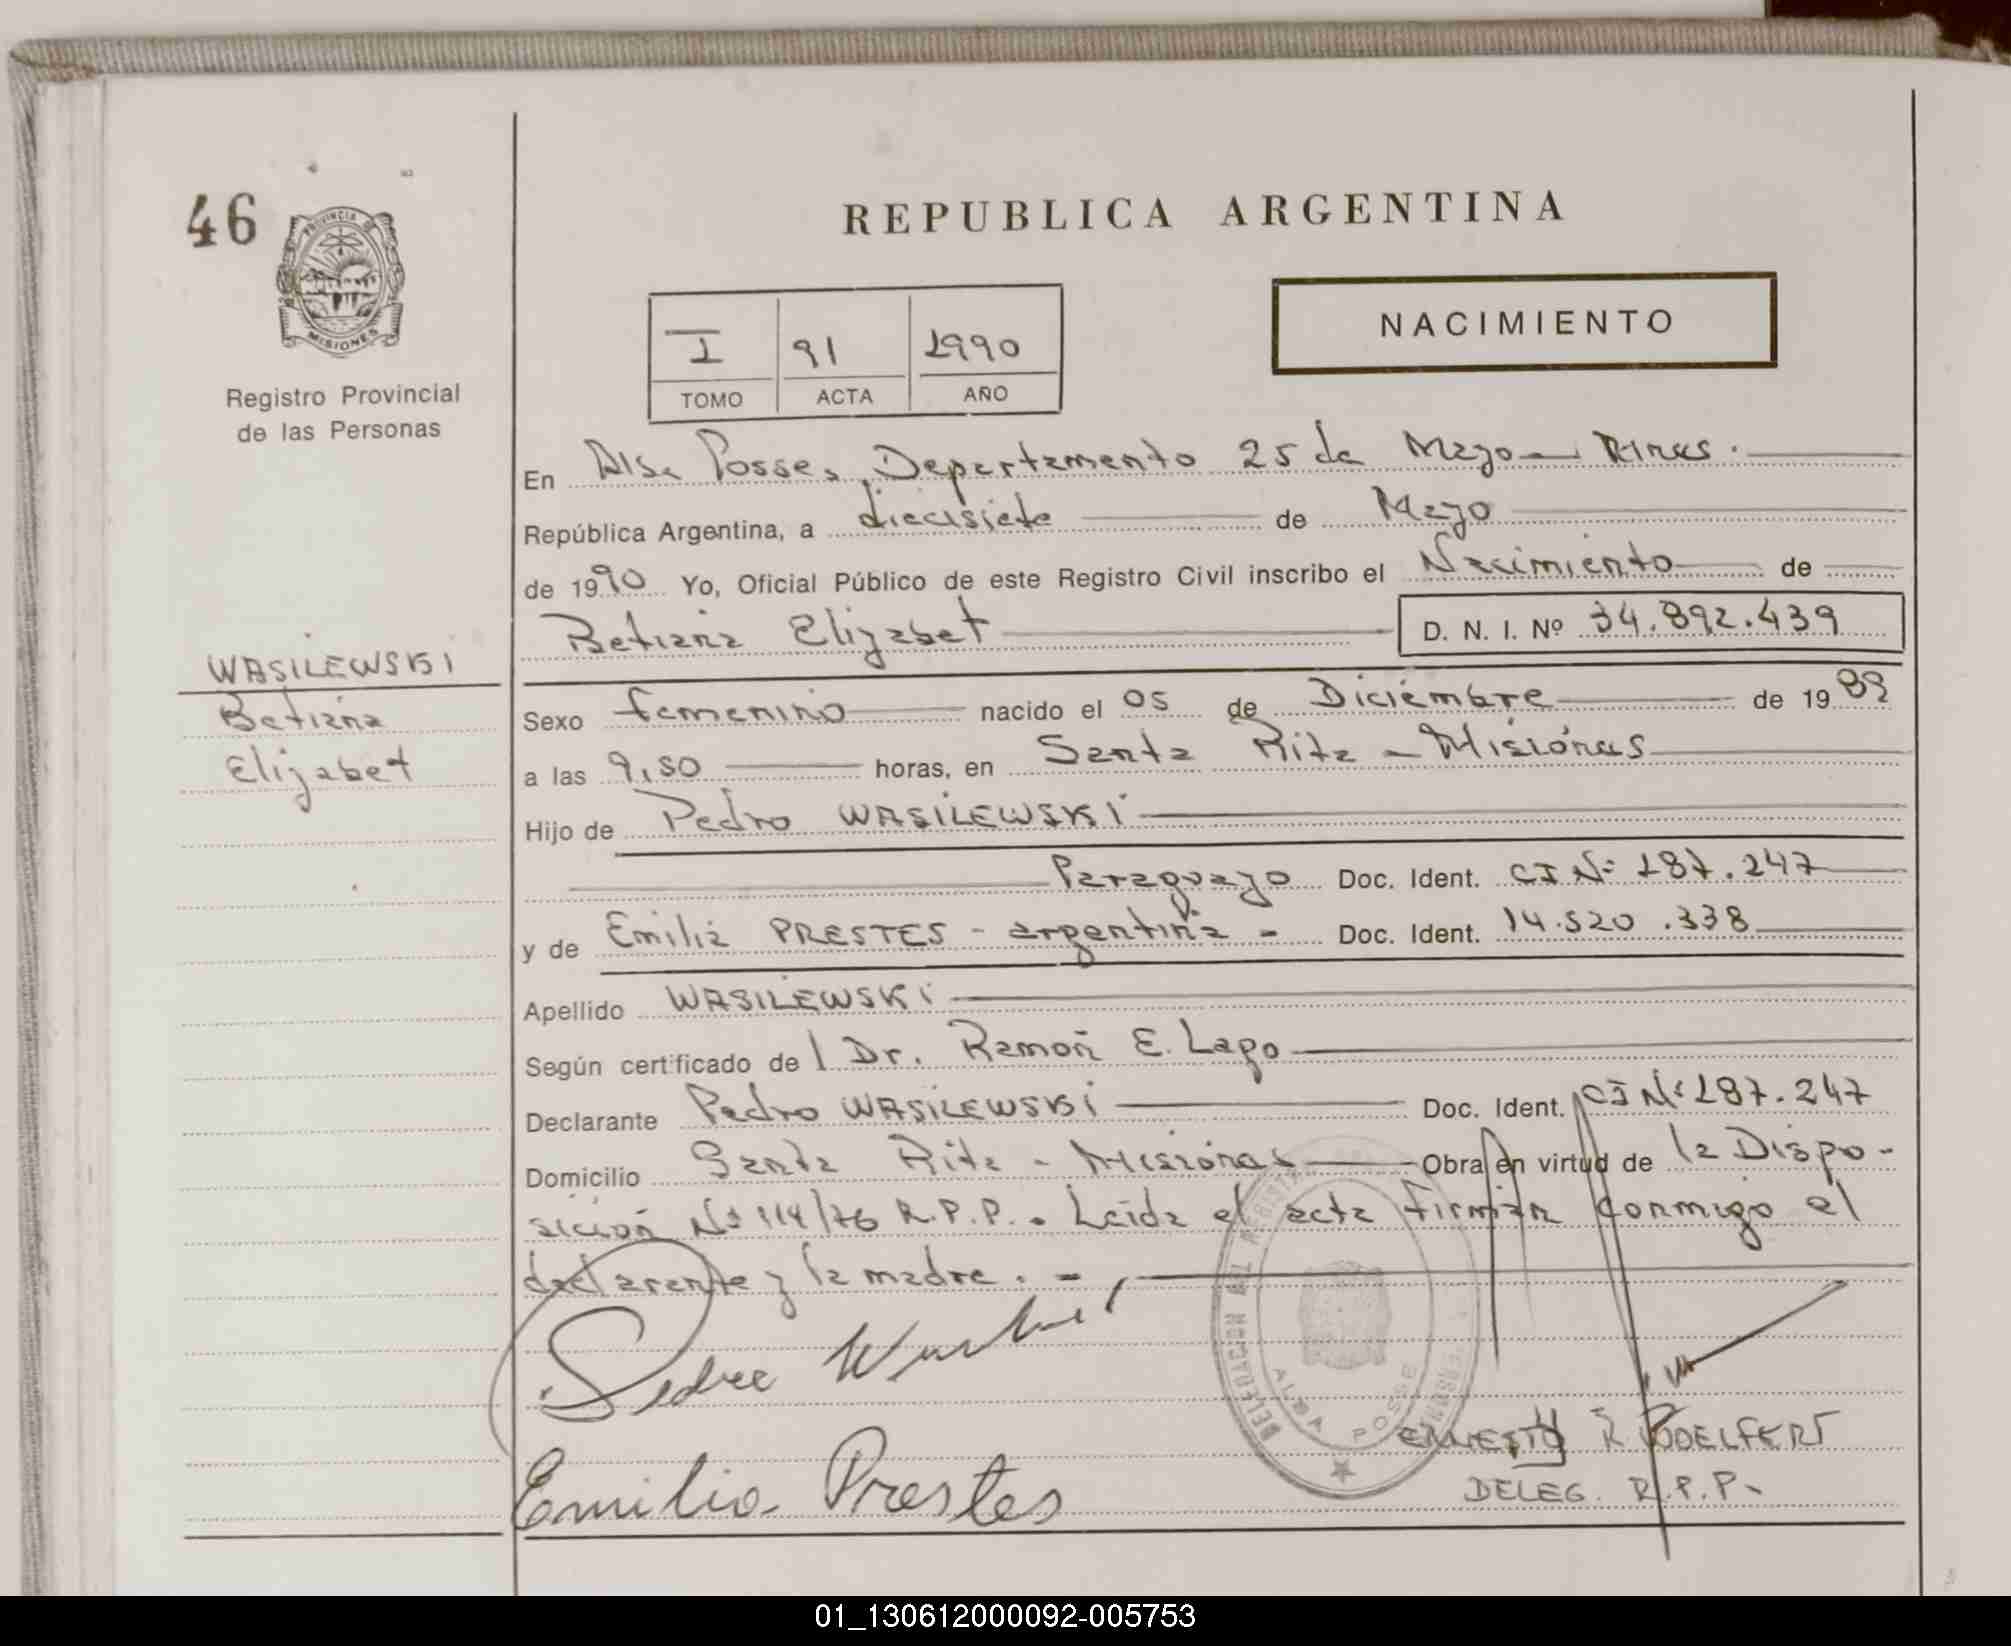 46
PROVINCIA DE
MISIONES
Registro Provincial
de las Personas
REPUBLICA ARGENTINA
I 91 1990
TOMO ACTA AÑO
NACIMIENTO
En Alba Posse, Departamento 25 de Mayo
República Argentina, a diecisiete de Mayo
de 1990 Yo, Oficial Público de este Registro Civil inscribo el Nacimiento de
Betiana Elizabet D. N. I. Nº 34.892.439
WASILEWSKI
Betiana
Elizabet
Sexo femenino nacido el 05 de Diciembre de 1989
a las 9,50 horas, en Santa Rita - Misiones
Hijo de Pedro WASILEWSKI
Paraguayo Doc. Ident. CI Nº 187.247
y de Emilia PRESTES - argentina - Doc. Ident. 14.520.338
Apellido WASILEWSKI
Según certificado de l Dr. Ramón E. Lago
Declarante Pedro WASILEWSKI Doc. Ident. CI Nº 187.247
Domicilio Santa Rita - Misiones Obra en virtud de la Dispo-
sición Nº 114/76 R.P.P. . Leída el acta firman conmigo el
declarante y la madre. -
Pedro
Emilia Prestes
DELEGACION DEL REGISTRO
ALBA POSSE
ERNESTO R
DELEG. R.P.P-
01_130612000092-005753